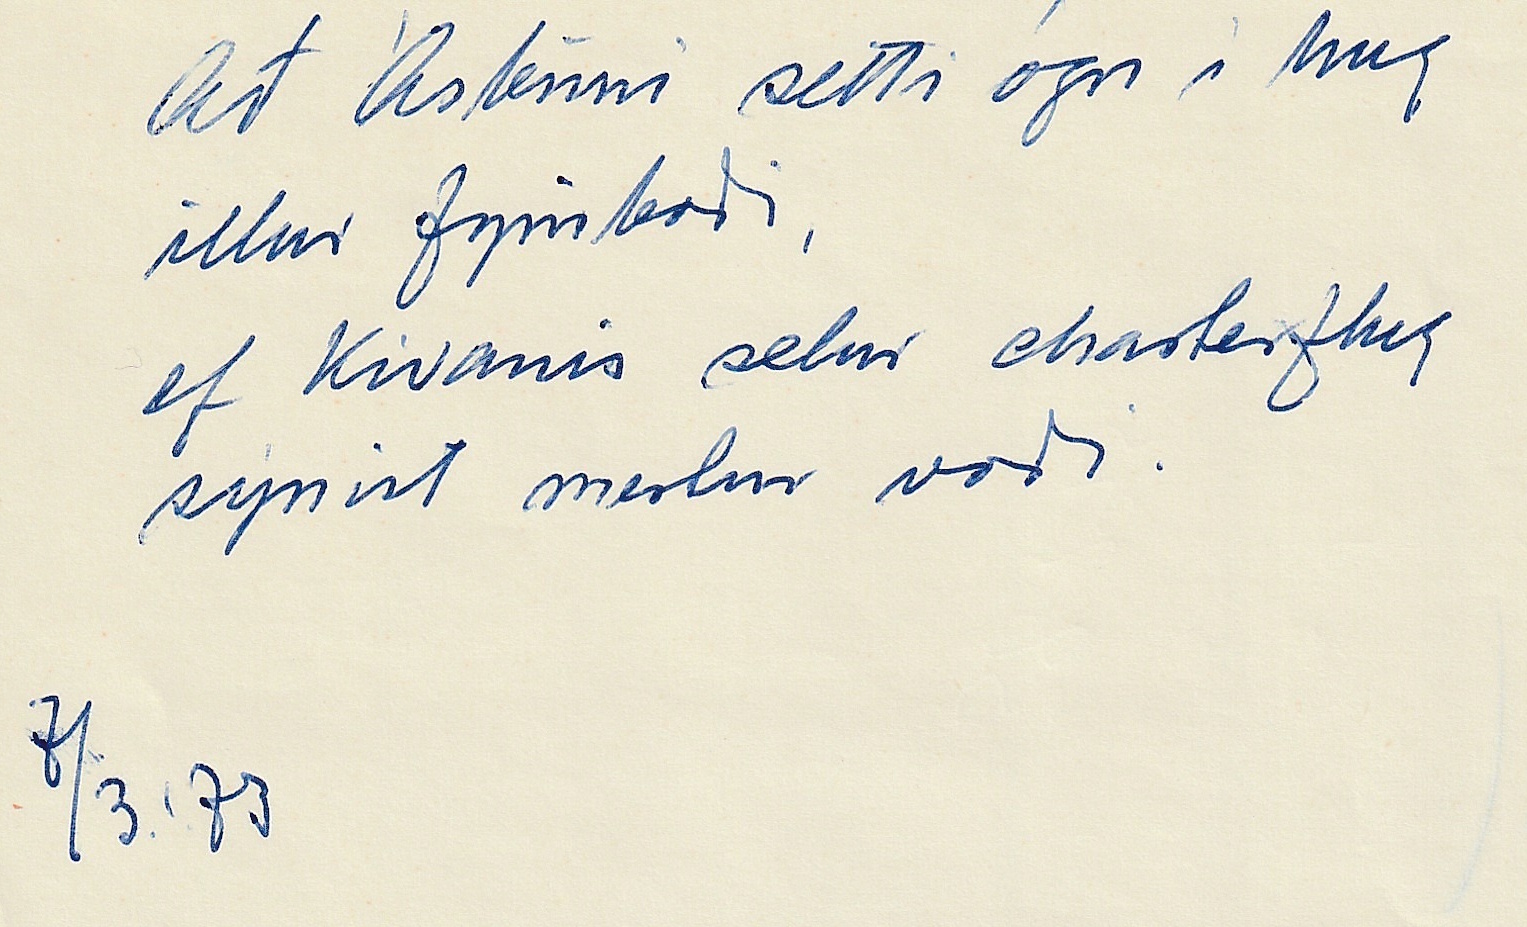 Að Ásbirni setti ógn í hug
illur fyrirboði,
ef Kivanis selur charterflug
sýnist mestur voði.
7/3. '73